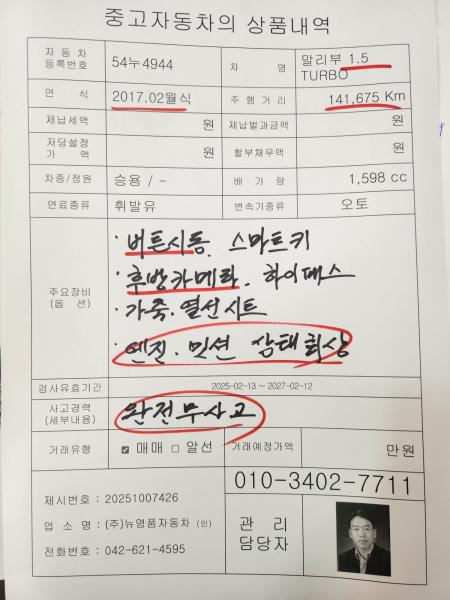 중고자동차의 상품내역
자동차 등록번호 54누4944 차 명 말리부 1.5 TURBO
연 식 2017.02월식 주행거리 141,675 Km
체납세액 원 체납벌과금액 원
저당설정 가 액 원 할부채무액 원
차종/정원 승용 / - 배 기 량 1,598 cc
연료종류 휘발유 변속기종류 오토
주요장비 (옵 션)
· 버튼시동. 스마트키
· 후방카메라. 하이패스
· 가죽. 열선시트
· 엔진. 밋션 상태최상
검사유효기간 2025-02-13 ~ 2027-02-12
사고경력 (세부내용) 완전무사고
거래유형 ☑ 매매 □ 알선 거래예정가액 만원
010-3402-7711
제시번호 : 20251007426
업 소 명 : (주)뉴명품자동차 (인)
전화번호 : 042-621-4595
관 리
담당자